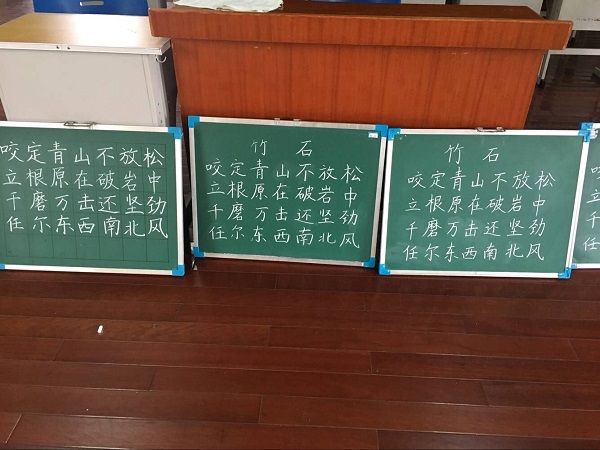 咬定青山不放松
立根原在破岩中
千磨万击还坚劲
任尔东西南北风
竹石
咬定青山不放松
立根原在破岩中
千磨万击还坚劲
任尔东西南北风
竹石
咬定青山不放松
立根原在破岩中
千磨万击还坚劲
任尔东西南北风
咬
立
千
任